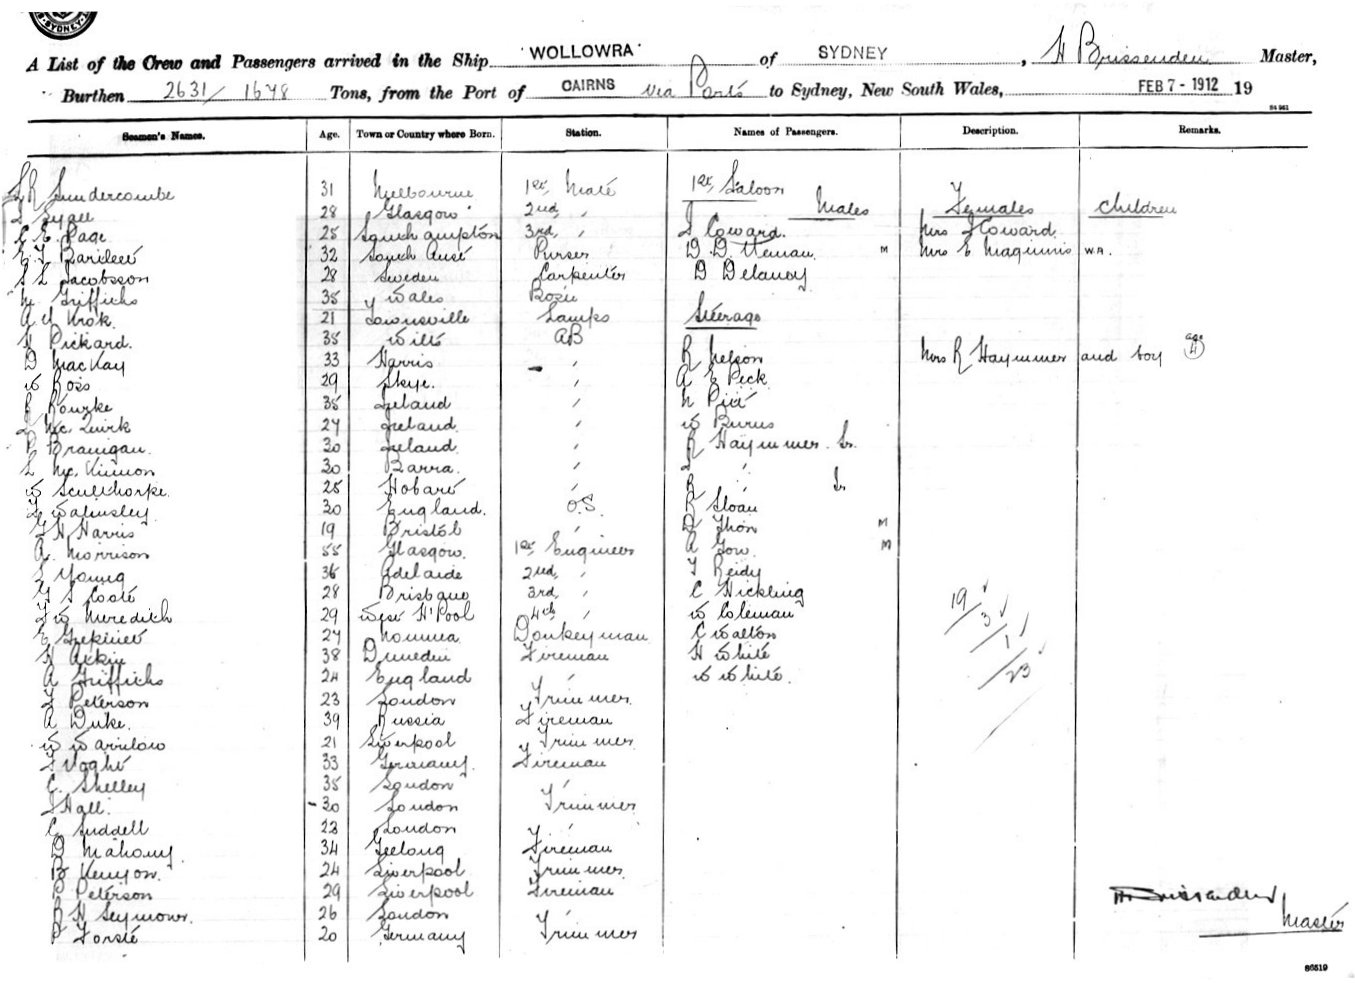 SYDNEY
A List of the Crew and Passengers arrived in the Ship 'WOLLOWRA' of SYDNEY, H Brissenden Master,
Burthen 2631/1678 Tons, from the Port of CAIRNS via Ports to Sydney, New South Wales, FEB 7 - 1912 19
84 961
Seamen's Names. Age. Town or Country where Born. Station. Names of Passengers. Description. Remarks.
Sundercombe 31 Melbourne 1st Mate 1st Saloon
Lyall 28 Glasgow 2nd " Males Females Children
C E Page 25 Southampton 3rd " J Coward. Mrs J Coward.
Bartlett 32 South Aust Purser D D M Mrs E Maginnis W.A.
Jacobsson 28 Sweden Carpenter D Delaney
Griffiths 35 Wales Bosn
A J Krok. 21 Townsville Lamps Steerage
H Pickard. 35 Wilts AB
D MacKay 33 Harris " R Nelson Mrs R Haymmer and boy age 4
W Ross 29 Skye. " A E Peck
Rourke 35 Ireland " N Pitt
Mc Quirk 27 Ireland. " W Burns
P Branigan. 30 Ireland. " R Haymmer Sr.
L Mc Kinnon 30 Barra. " "
W Sculthorpe. 25 Hobart " R " Jr
Walmsley. 30 England. O.S. R Sloan
H Harris 19 Bristol " D Thon M
A. Morrison 55 Glasgow. 1st Engineer A Gow. M
Young 36 Adelaide 2nd " T Reidy
Coote 28 Brisbane 3rd " C Hickling
W Meredith 29 West H'Pool 4th " W Coleman
27 Noumea Donkeyman C Walton
H Atkin 38 Dunedin Fireman H White
A Griffiths 24 England " W White.
19
3
1
23
Peterson 23 London Trimmer
A Duke. 39 Russia Fireman
W Warilow 21 Liverpool Trimmer
Voght 33 Germany. Fireman
C. Shelley 35 London "
J Hall. 30 London Trimmer
C Suddell 23 London "
D Mahony. 34 Geelong Fireman
B Kenyon. 24 Liverpool Trimmer
P Peterson 29 Liverpool Fireman
R H Seymour. 26 London "
P Forste 20 Germany Trimmer
H Brissenden
Master
86519